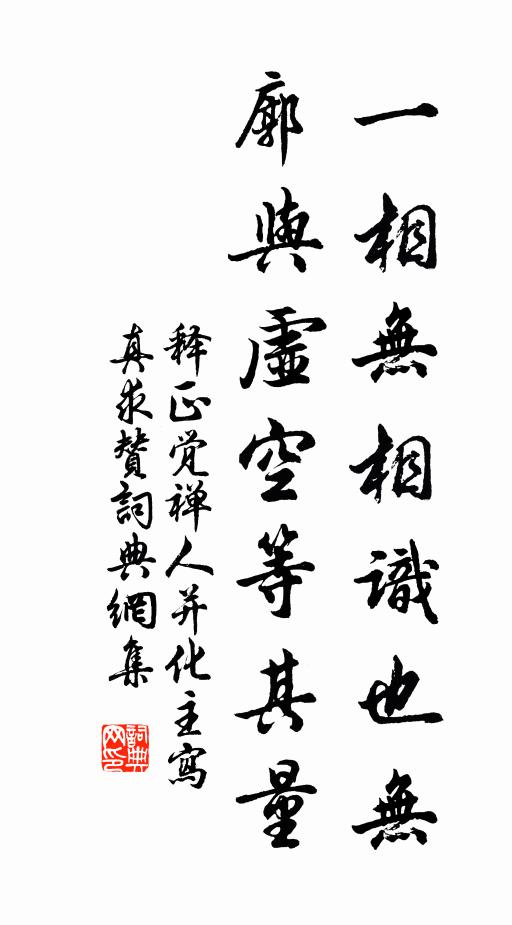 一相無相識也無
廓與虛空等其量
释正觉禅人并化主寫
真求贊詞典網集
詞典网印